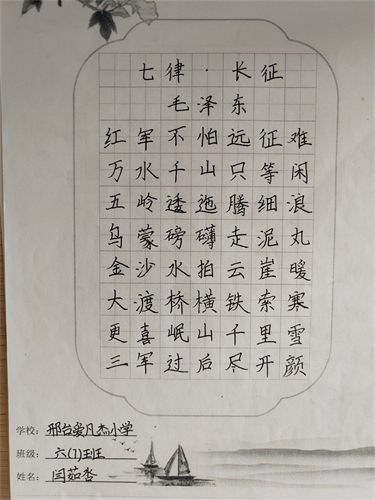 七律·长征
毛泽东
红军不怕远征难
万水千山只等闲
五岭逶迤腾细浪
乌蒙磅礴走泥丸
金沙水拍云崖暖
大渡桥横铁索寒
更喜岷山千里雪
三军过后尽开颜
学校：邢台爱凡杰小学
班级：六(1)班
姓名：闫茹杏